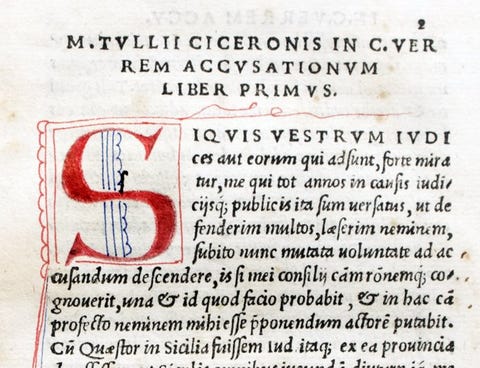 2
M. TVLLII CICERONIS IN C. VER
REM ACCVSATIONVM
LIBER PRIMVS.
SIQVIS VESTRVM IVDI
ces aut eorum qui adsunt, forte mira
tur, me qui tot annos in causis iudi/
cijsq; publicis ita sum uersatus, ut de
fenderim multos, læserim neminem,
subito nunc mutata uoluntate ad ac
cusandum descendere, is si mei consilij cām rōnemq; co/
gnouerit, una & id quod facio probabit, & in hac cā
profecto neminem mihi esse p̄ponendum actorē putabit.
Cū Quæstor in Sicilia fuissem Iud. itaq; ex ea prouincia